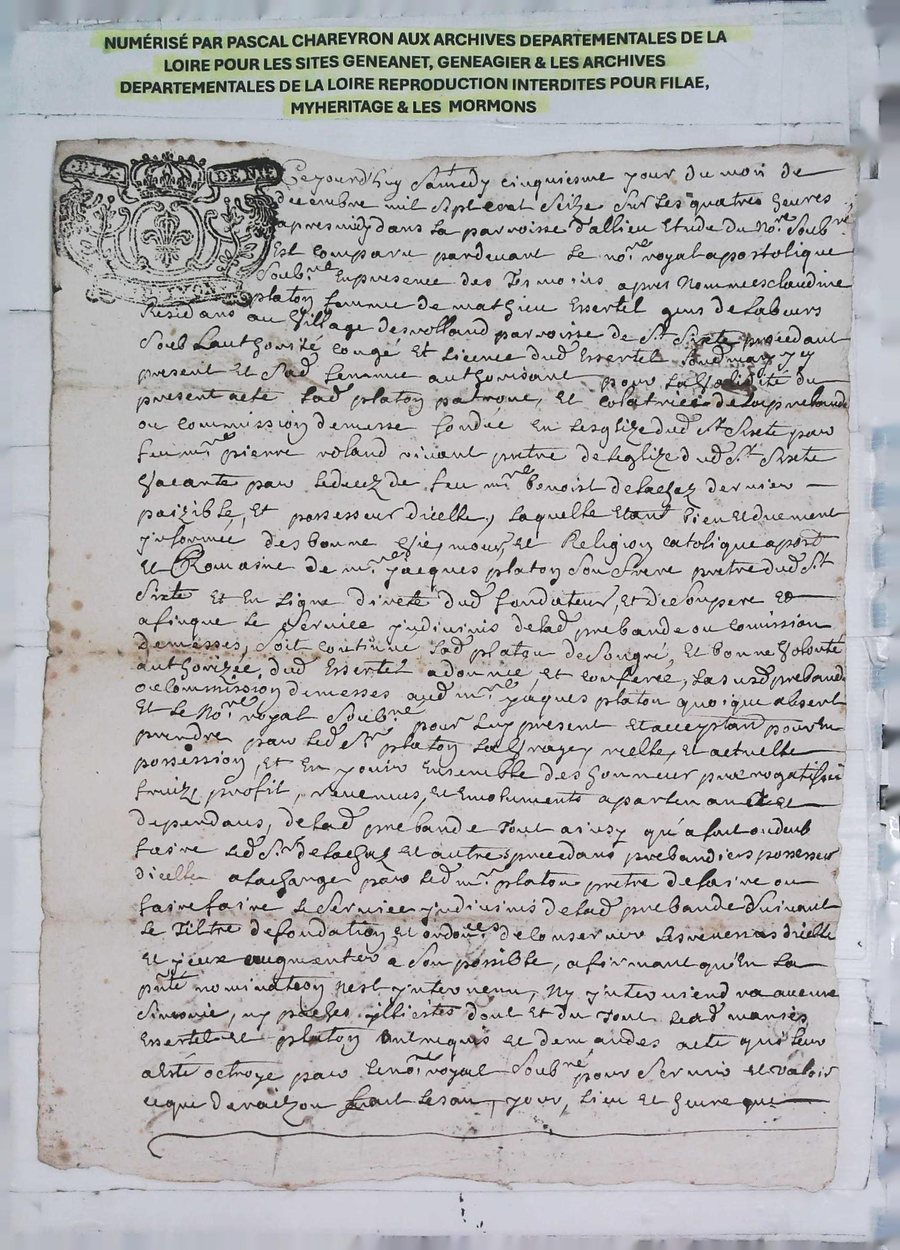 NUMÉRISÉ PAR PASCAL CHAREYRON AUX ARCHIVES DEPARTEMENTALES DE LA
LOIRE POUR LES SITES GENEANET, GENEAGIER & LES ARCHIVES
DEPARTEMENTALES DE LA LOIRE REPRODUCTION INTERDITES POUR FILAE,
MYHERITAGE & LES MORMONS
SIX DENIE
LYON
Ce jourd'huy Samedy cinquiesme jour du moy de
decembre mil Sept cent Seize Sur Les quatres heures
apres midy dans La parroisse d'allieu Etude du No.re Soub.né
Est comparu pardevant Le no.re royal apostolique
Soub.né En presence des Tesmoins apres Nommes claudine
platon femme de mathieu Essertel gens de Labeurs
Residans au Village des rolland parroisse de S.t Sixte procedant
Soub Lauthorité congé Et Licence dud Essertel Son d mary y
present Et Sad femme authorisant pour La Validité du
present acte Lad platon patrone, Et colatrice de La prebande
ou commission de messe fondée En Lesglize dud S.t Sixte par
feu m.re pierre roland vivant pretre de Leglize dud S.t Sixte
Vacante par Le decez de feu m.re benoist delachaz dernier
paizible, Et possesseur dicelle, Laquelle Etant bien Et duement
jnformée des bonne Vie, mœurs Et Religion catolique apost
Et Romaine de m.re jacques platon Son frere pretre dud S.t
Sixte Et En Ligne directe dud fondateur, Et dicelluy
afinque Le Service y du divins de Lad prebande ou comission
de messes, Soit continué Lad platon de Son gré, Et bonne Volonté
authorizée dud Essertel a donnée Et conferée, La susd prebande
ou commission de messes aud m.re jaques platon quoique absent
Et Le No.re royal Soub.né pour Luy present Et acceptant pour En
prendre par Led S.r platon La Vraye, rielle, Et actuelle
possession, Et En jouir Ensemble des honneur prerogatifs
fruitz, profit, revenus, Et Emoluments apartenans Et
dependans, de Lad prebande Tout ainsy qu'a fait ou deub
faire Led S.r delachaz Et autres precedans prebandiers possesseur
dicelle a La charge par Led m.re platon pretre de faire ou
faire faire Le Service de Lad prebande Suivant
Le Tiltre de fondation, Et ordon.ces de conserver Les revenus dicelle
Et jceux augmenter a Son possible, afirmant qu'En La
p.nte nomination Nest jntervenu, Ny jnterviendra aucune
Simonie, ny paches jlliciets dont Et du Tout Lesd mariés
Essertel Et platon ont requis Et demandes acte qui leur
a Esté octroyé par Le no.re royal Soub.né pour Servir Et valoir
ce que de raizon fait Les an, jour, Lieu Et heure que